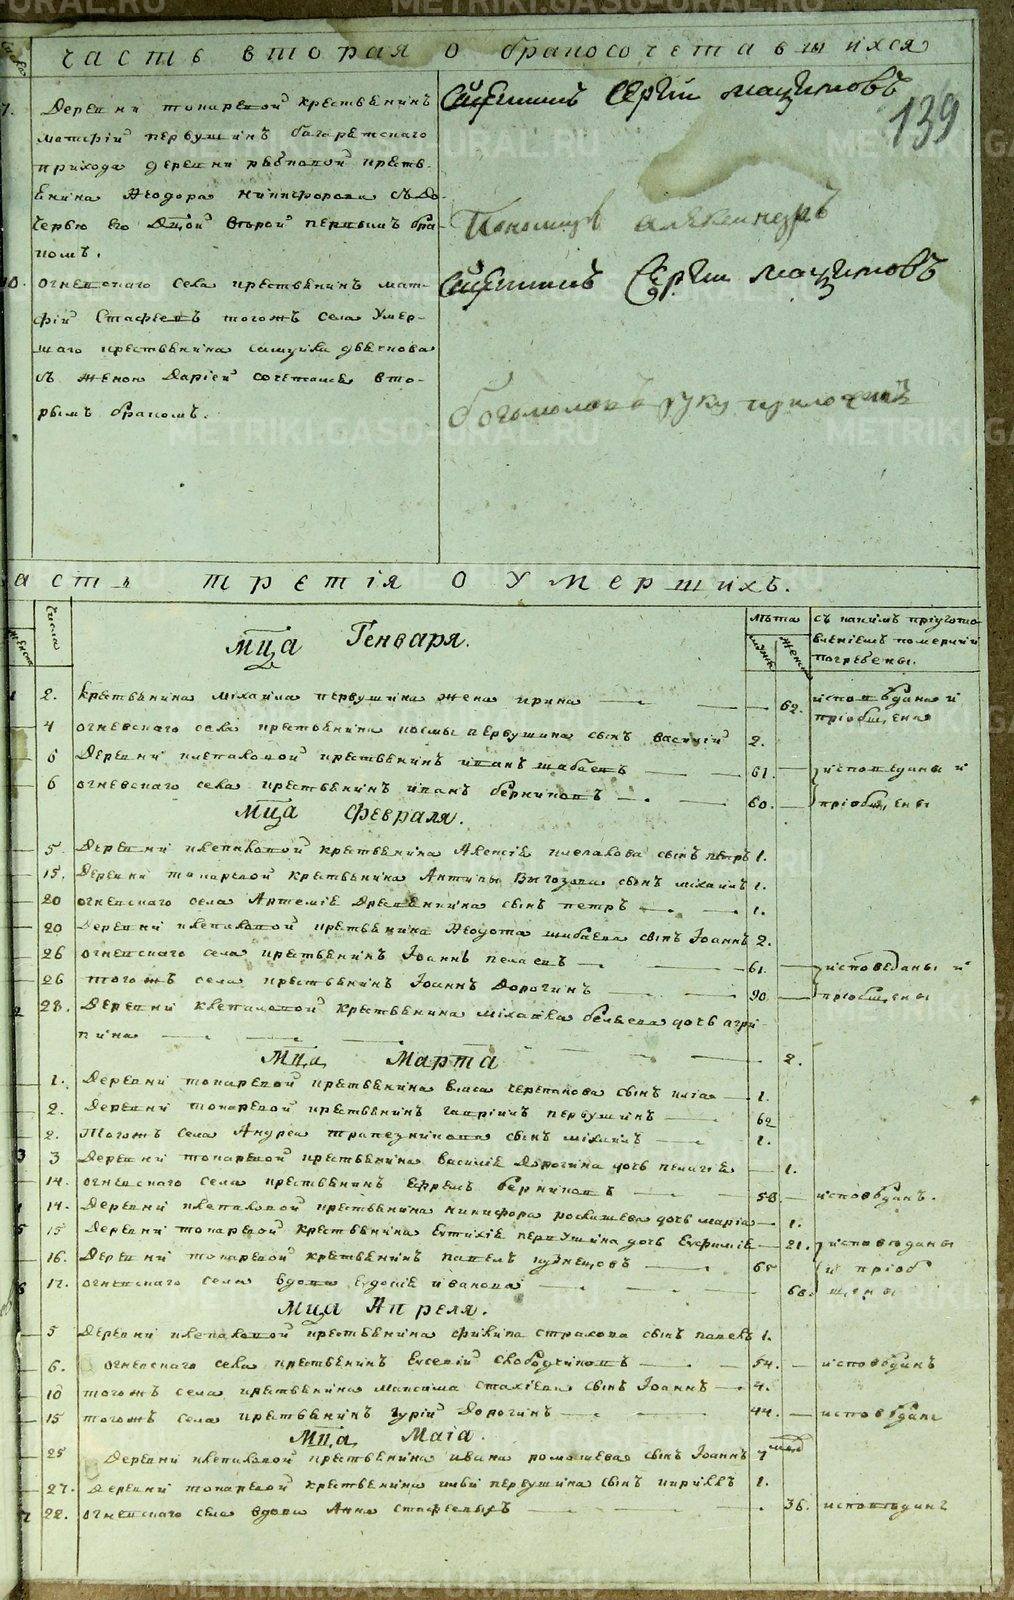 часть вторая о бракосочетавшихся
139
7. Деревни токаревой крестьянинъ
матфій первушинъ багаретскаго
прихода деревни рыбновой кресть-
янина Ѳеодора никифорова съ до-
черью его второй первымъ бра-
комъ.
10. огневскаго села крестьянинъ мат-
фій Стафеевъ тогожъ села Умер-
шаго крестьянина
съ женою Даріею сочетался вто-
рымъ бракомъ.
Священникъ Сергій Максимовъ
Пономарь Александръ
Священникъ Сергій Максимовъ
Богомоловъ руку приложилъ
асть третія о умершихъ.
Числа
лѣта
мужс
женс
съ какимъ пріугото-
вленіемъ помершій
погребены.
мца Генваря.
2. крестьянина михаила первушина жена ирина 62. исповѣдана и
пріобщена
4 огневскаго села крестьянина козмы первушина сынъ василій 2.
6 Деревни клепаловой крестьянинъ иванъ шабаевъ 61. исповеданы и
6 огневскаго села крестьянинъ иванъ берниковъ 60. пріобщены
мца февраля.
5. Деревни клепаловой крестьянина Алексіе клепалова сынъ петръ 1.
15. Деревни токаревой крестьянина Антипы сынъ михаилъ 1.
20 огневскаго села Артеміе сынъ петръ 1.
20 Деревни клепаловой крестьянина Ѳеодота шибаева сынъ Іоаннъ 2.
26 огневскаго села крестьянинъ Іоаннъ 61. исповеданы и
26 тогожъ села крестьянинъ Іоаннъ Дорогинъ 90. пріобщены
28. Деревни клепаловой крестьянина михаила беляева дочь агри-
пина 2.
мца Марта
1. Деревни токаревой крестьянина власа черепанова сынъ илія 1.
2. Деревни токаревой крестьянинъ гавріилъ первушинъ 62
2. Тогожъ села Андрея трапезникова сынъ михаилъ 1.
3 Деревни токаревой крестьянина василіе Дорогина дочь пелагіе 1.
14. огневскаго села крестьянинъ Ефремъ берниковъ 58 исповѣданъ.
14. Деревни клепаловой крестьянина никифора дочь марія 1.
15 Деревни токаревой крестьянина Евтихіе первушина дочь Евфиміе 21. исповѣданы
16. Деревни токаревой крестьянинъ павелъ кузнецовъ 65 и пріоб
17. огневскаго села вдова Евдокіе иванова 60. щены
мца Апреля.
5 Деревни клепаловой крестьянина филипа страхова сынъ павелъ 1.
6. огневскаго села крестьянинъ Евсевій свободчиковъ 54. исповѣданъ
10 тогожъ села крестьянина максима стахіева сынъ Іоаннъ 4.
15 тогожъ села крестьянинъ гурій Дорогинъ 44. исповѣданъ
мца Маіа.
25 Деревни клепаловой крестьянина ивана ромашева сынъ Іоаннъ
27. Деревни токаревой крестьянина первушина сынъ кириллъ 1.
22. огневскаго села вдова Анна стафеевыхъ 36. исповѣдана